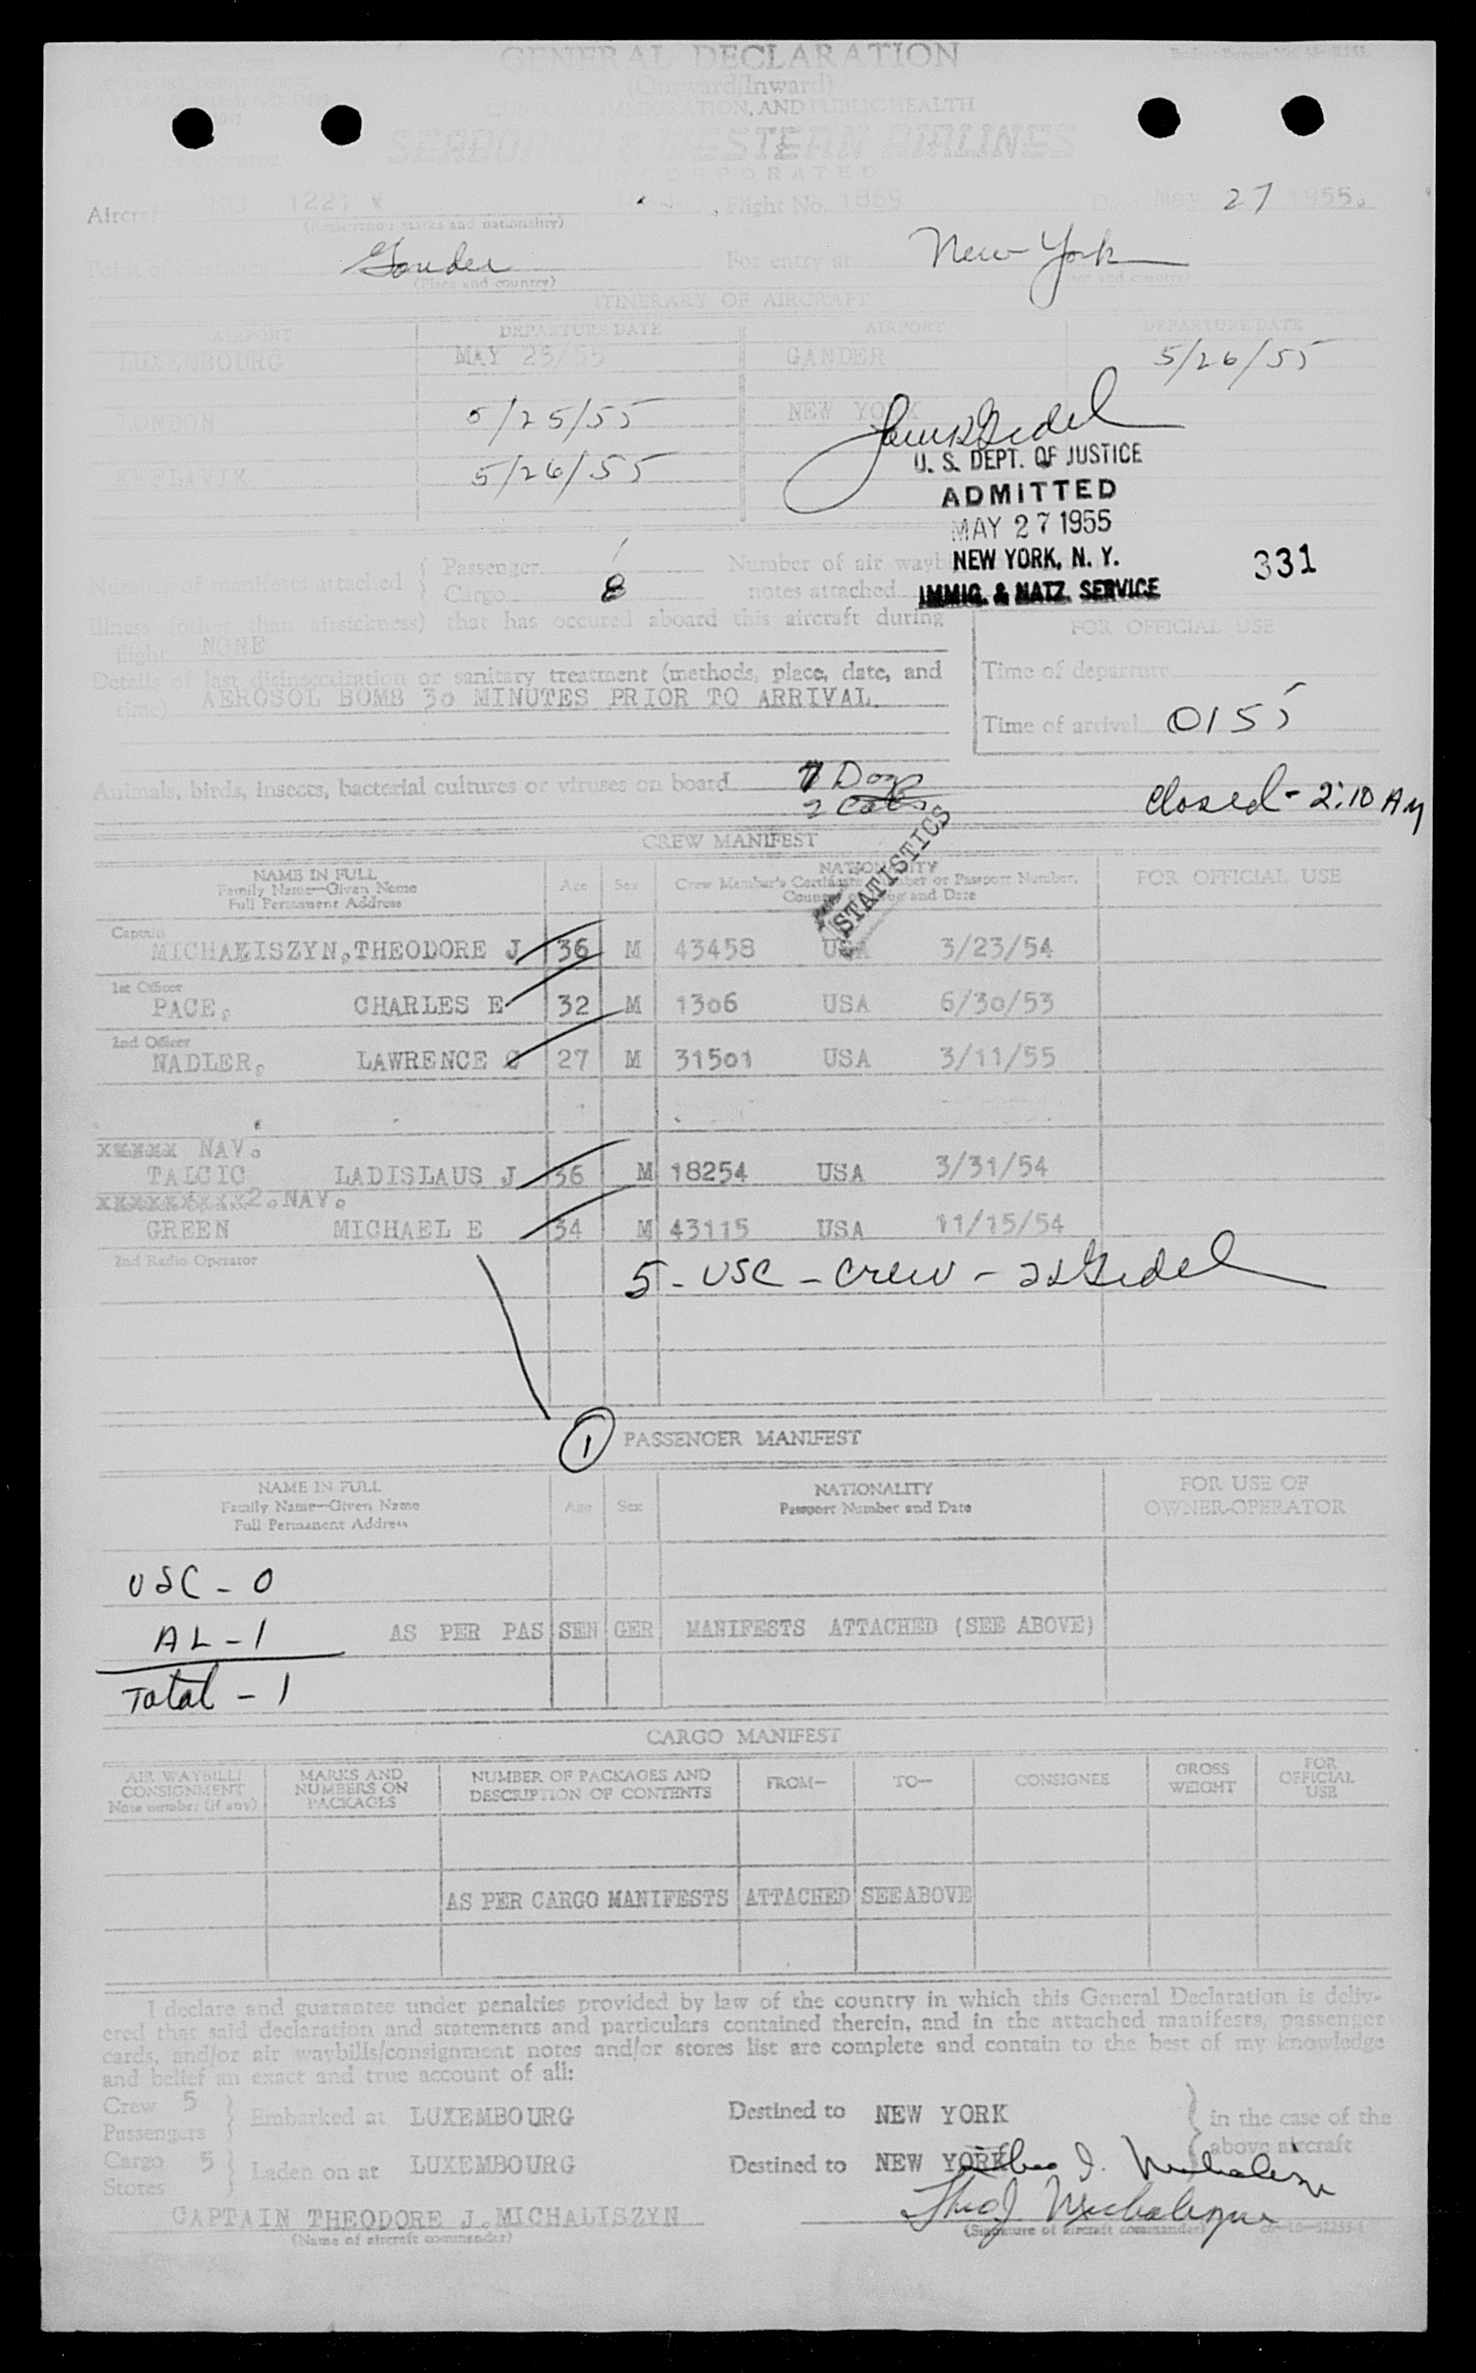 GENERAL DECLARATION
(Outward/Inward)
CUSTOMS, IMMIGRATION, AND PUBLIC HEALTH
SEABOARD & WESTERN AIRLINES
INCORPORATED
Aircraft 1221 Flight No. 1869 May 27 1955.
(Registration marks and nationality)
Gander For entry at New York
(Place and country) (Place and country)
ITINERARY OF AIRCRAFT
AIRPORT DEPARTURE DATE AIRPORT DEPARTURE DATE
LUXEMBOURG MAY 25/55 GANDER 5/26/55
LONDON 5/25/55 NEW YORK
KEFLAVIK 5/26/55
U. S. DEPT. OF JUSTICE
ADMITTED
MAY 27 1955
NEW YORK, N. Y.
IMMIG. & NATZ. SERVICE
331
Number of manifests attached { Passenger 1 Number of air waybills
Cargo 8 notes attached
Illness (other than airsickness) that has occured aboard this aircraft during
flight NONE
FOR OFFICIAL USE
Details of last disinsectization or sanitary treatment (methods, place, date, and
time) AEROSOL BOMB 30 MINUTES PRIOR TO ARRIVAL.
Time of departure
Time of arrival 0155
Animals, birds, insects, bacterial cultures or viruses on board 7 Dogs
2 Cats
Closed - 2:10 AM
STATISTICS
CREW MANIFEST
NAME IN FULL
Family Name—Given Name
Full Permanent Address
Age Sex
NATIONALITY
Crew Member's Certificate Number or Passport Number,
Country of Issue and Date
FOR OFFICIAL USE
Captain
MICHALISZYN, THEODORE J 36 M 43458 USA 3/23/54
1st Officer
PACE, CHARLES E 32 M 1306 USA 6/30/53
2nd Officer
NADLER, LAWRENCE C 27 M 31501 USA 3/11/55
xxxxx NAV.
TALCIC LADISLAUS J 36 M 18254 USA 3/31/54
2.NAV.
GREEN MICHAEL E 34 M 43115 USA 11/15/54
2nd Radio Operator
5 - USC - Crew -
1 PASSENGER MANIFEST
NAME IN FULL
Family Name—Given Name
Full Permanent Address
Age Sex
NATIONALITY
Passport Number and Date
FOR USE OF
OWNER-OPERATOR
USC - 0
AL - 1 AS PER PASSENGER MANIFESTS ATTACHED (SEE ABOVE)
Total - 1
CARGO MANIFEST
AIR WAYBILL/
CONSIGNMENT
Note number (if any)
MARKS AND
NUMBERS ON
PACKAGES
NUMBER OF PACKAGES AND
DESCRIPTION OF CONTENTS
FROM— TO— CONSIGNEE
GROSS
WEIGHT
FOR
OFFICIAL
USE
AS PER CARGO MANIFESTS ATTACHED SEE ABOVE
I declare and guarantee under penalties provided by law of the country in which this General Declaration is deliv-
ered that said declaration and statements and particulars contained therein, and in the attached manifests, passenger
cards, and/or air waybills/consignment notes and/or stores list are complete and contain to the best of my knowledge
and belief an exact and true account of all:
Crew 5 } Embarked at LUXEMBOURG Destined to NEW YORK } in the case of the
Passengers
Cargo 5 } Laden on at LUXEMBOURG Destined to NEW YORK above aircraft
Stores
CAPTAIN THEODORE J. MICHALISZYN
Theo J. Michaliszyn
(Name of aircraft commander) (Signature of aircraft commander)